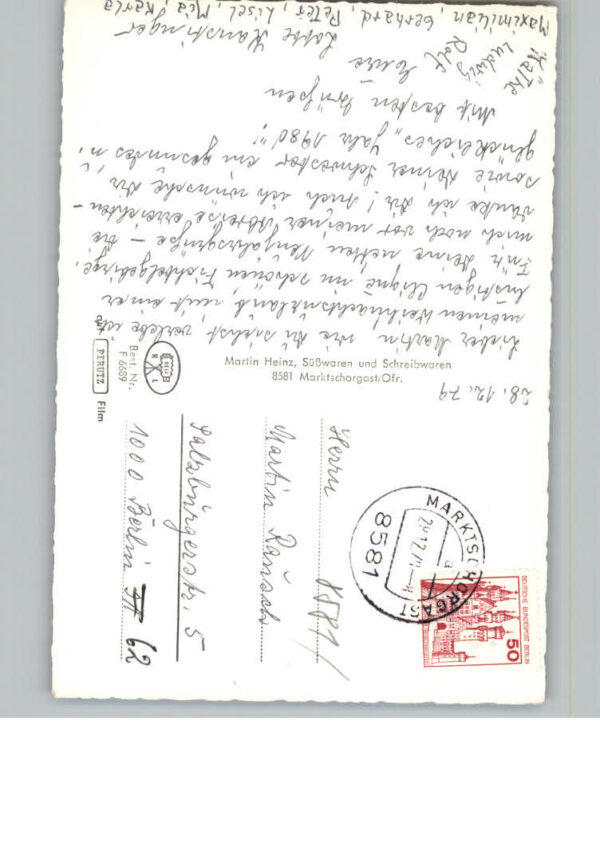 28.12.79
Lieber Martin wie du siehst verlebe ich
meinen Weihnachtsurlaub mit einer
lustigen Clique im schönen Fichtelgebirge.
Für deine netten Neujahrsgrüße - die
mich noch vor meiner Abreise erreichten -
danke ich dir! Auch ich wünsche dir
sowie deiner Schwester ein gesundes u.
glückliches „Jahr 1980"!
Mit besten Grüßen
Eure
Lotte
Käthe
Ludwig
Rolf
Maximilian, Gerhard, Peter, Lisel, Mia, Karla
Martin Heinz, Süßwaren und Schreibwaren
8581 Marktschorgast/Ofr.
Best. Nr.
F 6689
PERUTZ Film
MARKTSCHORGAST
8581
DEUTSCHE BUNDESPOST BERLIN
50
8581/
Herrn
Martin Rausch
Salzburgerstr. 5
1000 Berlin 62